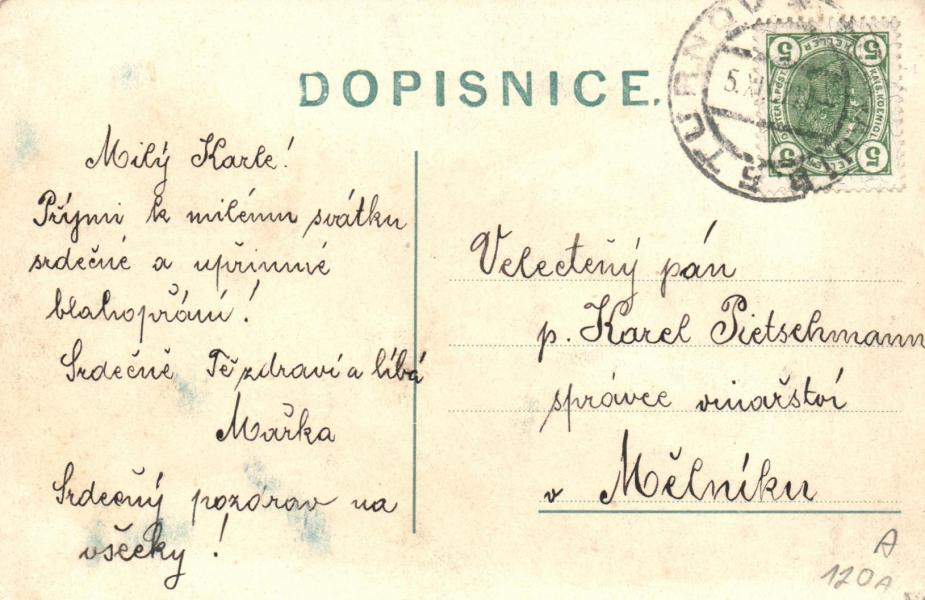 DOPISNICE.
TURNOV
5. XI
5 5
5 5
Milý Karle!
Přijmi k milému svátku
srdečné a upřímné
blahopřání!
Srdečně Tě zdraví a líbá
Mařka
Srdečný pozdrav na
všecky!
Velectěný pán
p. Karel Pietschmann
správce vinařství
v Mělníku
A
120A